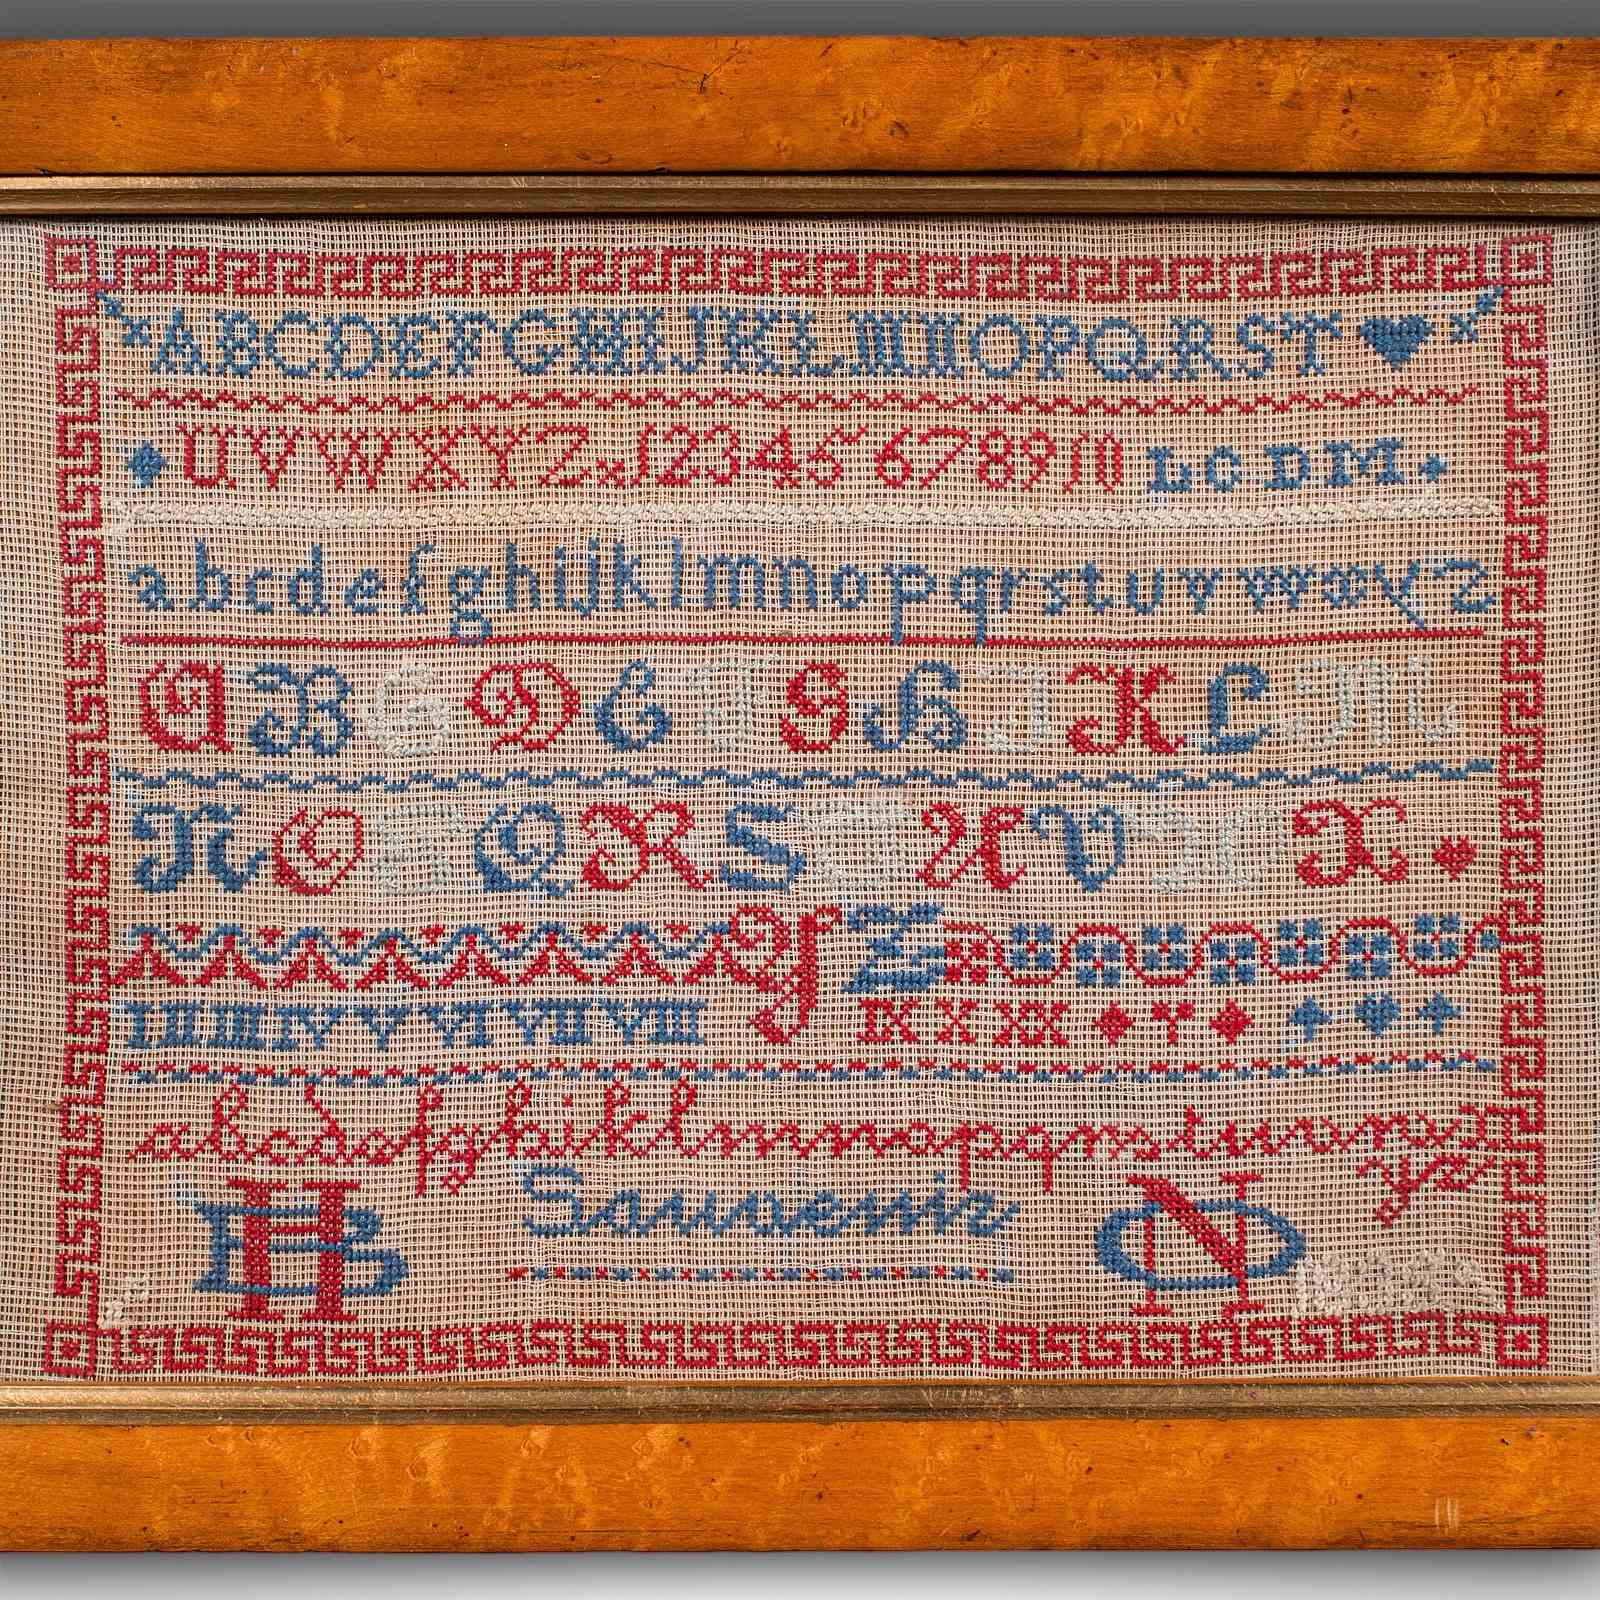 ABCDEFGHIJKLMNOPQRST
UVWXYZ.12345678910 LCDM.
abcdefghijklmnopqrstuvwxyz
ABCDEFGHIJKLM
NOPQRSTUVWX
YZ
I II III IV V VI VII VIII IX X XX
abcdefghijklmnopqrstuvwx
yz
Souvenir
HB NO